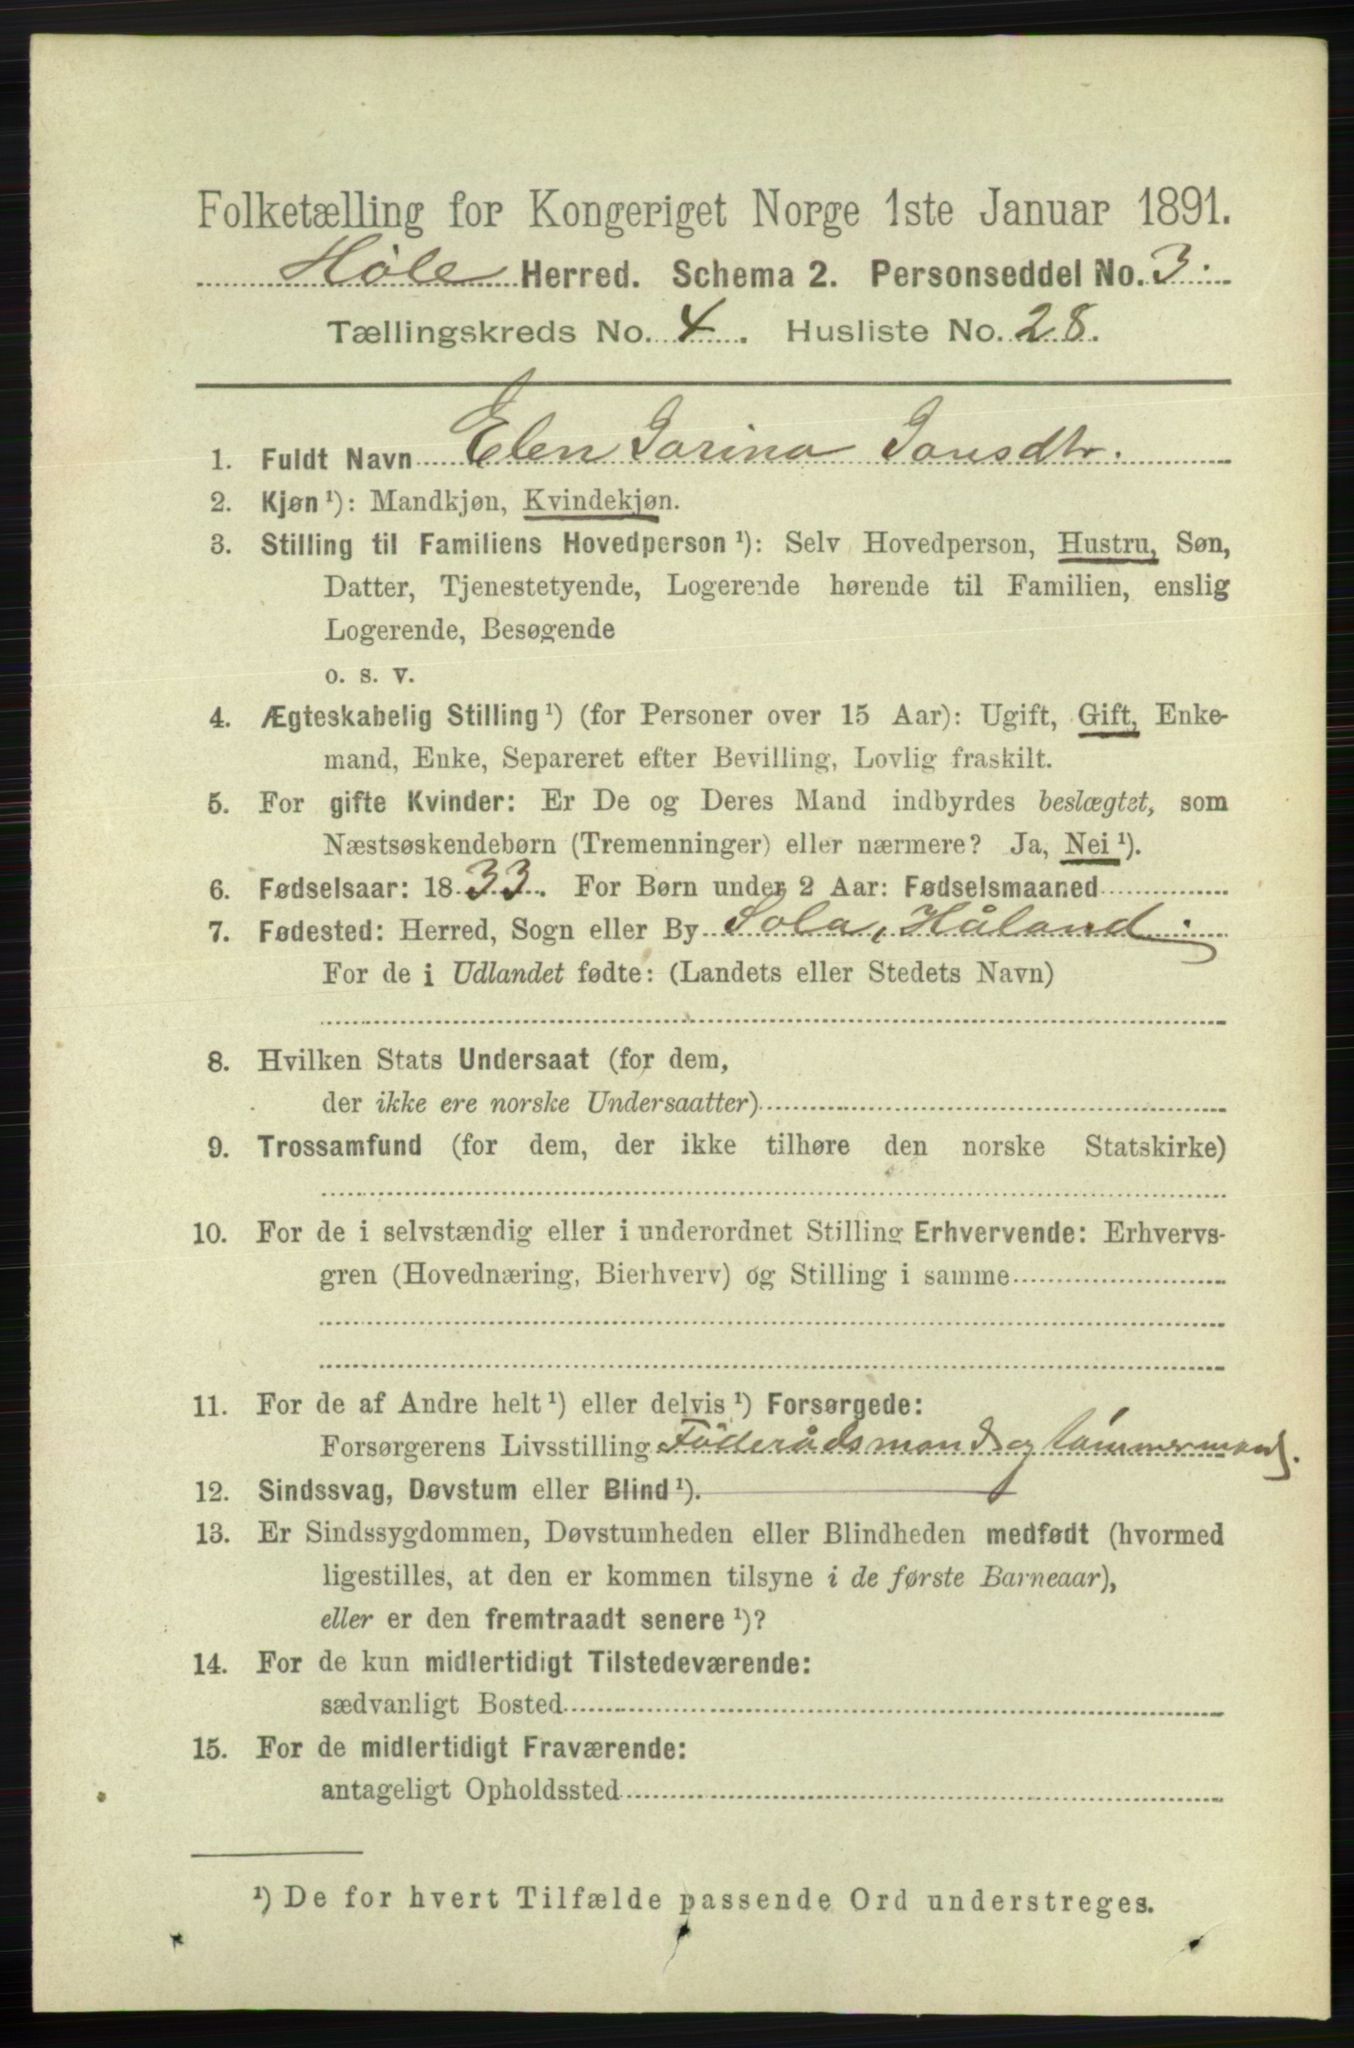 Folketælling for Kongeriget Norge 1ste Januar 1891.
Høle Herred. Schema 2. Personseddel No. 3.
Tællingskreds No. 4. Husliste No. 28.
1. Fuldt Navn Elen Jorina Jonsdtr.
2. Kjøn ¹): Mandkjøn, Kvindekjøn.
3. Stilling til Familiens Hovedperson ¹): Selv Hovedperson, Hustru, Søn,
Datter, Tjenestetyende, Logerende hørende til Familien, enslig
Logerende, Besøgende
o. s. v.
4. Ægteskabelig Stilling ¹) (for Personer over 15 Aar): Ugift, Gift, Enke-
mand, Enke, Separeret efter Bevilling, Lovlig fraskilt.
5. For gifte Kvinder: Er De og Deres Mand indbyrdes beslægtet, som
Næstsøskendebørn (Tremenninger) eller nærmere? Ja, Nei ¹).
6. Fødselsaar: 1833. For Børn under 2 Aar: Fødselsmaaned
7. Fødested: Herred, Sogn eller By Sola, Håland.
For de i Udlandet fødte: (Landets eller Stedets Navn)
8. Hvilken Stats Undersaat (for dem,
der ikke ere norske Undersaatter)
9. Trossamfund (for dem, der ikke tilhøre den norske Statskirke)
10. For de i selvstændig eller i underordnet Stilling Erhvervende: Erhvervs-
gren (Hovednæring, Bierhverv) og Stilling i samme
11. For de af Andre helt ¹) eller delvis ¹) Forsørgede:
Forsørgerens Livsstilling Föderådsmand og tömmermand.
12. Sindssvag, Døvstum eller Blind ¹).
13. Er Sindssygdommen, Døvstumheden eller Blindheden medfødt (hvormed
ligestilles, at den er kommen tilsyne i de første Barneaar),
eller er den fremtraadt senere ¹)?
14. For de kun midlertidigt Tilstedeværende:
sædvanligt Bosted
15. For de midlertidigt Fraværende:
antageligt Opholdssted
¹) De for hvert Tilfælde passende Ord understreges.